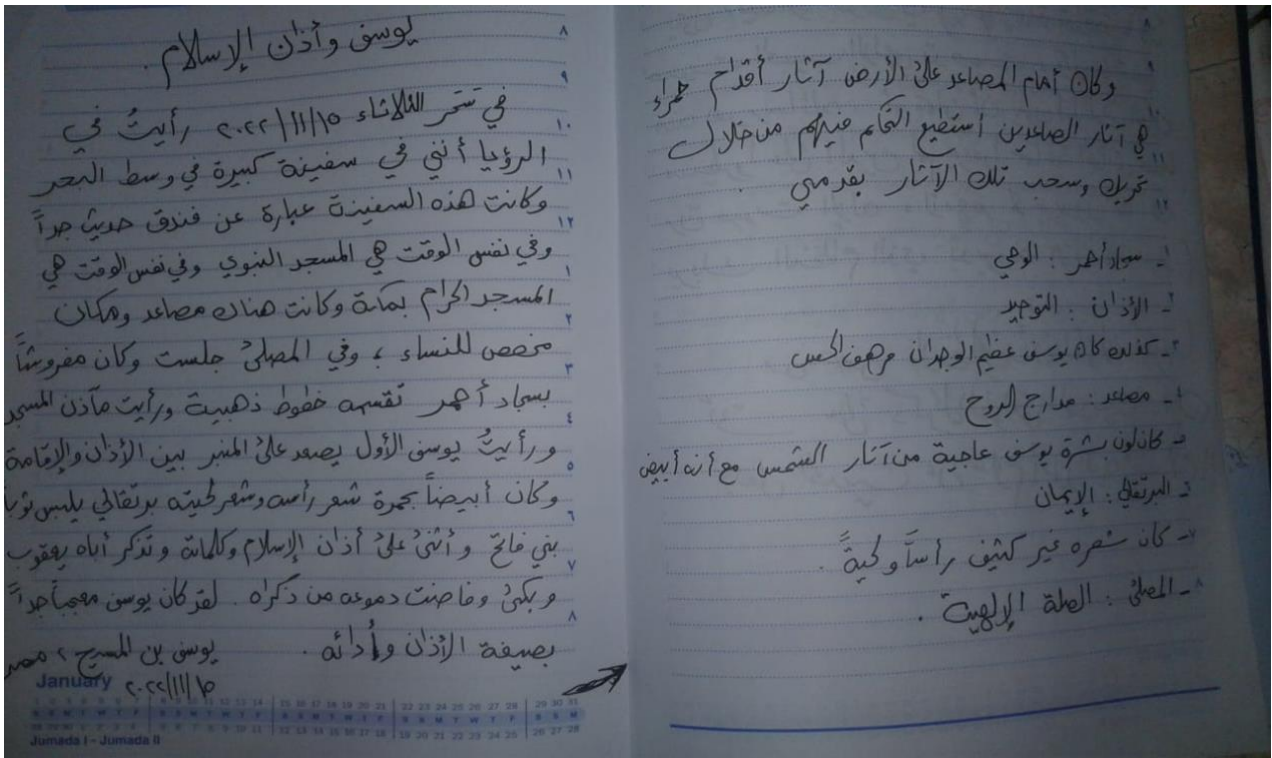 يوسف وأذان الإسلام .
في سَحَر الثلاثاء ٢٠٢٢/١١/١٥ رأيتُ في
الرؤيا أنني في سفينة كبيرة في وسط البحر
وكانت هذه السفينة عبارة عن فندق حديث جداً
وفي نفس الوقت هي المسجد النبوي وفي نفس الوقت هي
المسجد الحرام بمكة وكانت هناك مصاعد ومكان
مخصص للنساء ، وفي المصلىٰ جلست وكان مفروشاً
بسجاد أحمر تقسمه خطوط ذهبية ورأيت مآذن المسجد
ورأيتُ يوسف الأول يصعد علىٰ المنبر بين الأذان والإقامة
وكان أبيضاً بحمرة شعر رأسه وشعر لحيته برتقالي يلبس ثوباً
بني فاتح وأثنىٰ علىٰ أذان الإسلام وكلماته وتذكر أباه يعقوب
وبكىٰ وفاضت دموعه من ذكراه . لقد كان يوسف معجباً جداً
بصيغة الأذان وأدائه .
يوسف بن المسيح ، مصر
٢٠٢٢/١١/١٥
January
1 2 3 4 5 6 7 8 9 10 11 12 13 14 15 16 17 18 19 20 21 22 23 24 25 26 27 28 29 30 31
Jumada I - Jumada II
وكان أمام المصاعد علىٰ الأرض آثار أقدام حمراء
هي آثار الصاعدين أستطيع التحكم فيهم من خلال
تحريك وسحب تلك الآثار بقدمي .
١ـ سجاد أحمر : الوحي
٢ـ الأذان : التوحيد
٣ـ كذلك كان يوسف عظيم الوجدان مرهف الحس
٤ـ مصاعد : مدارج الروح
٥ـ كان لون بشرة يوسف عاجية من آثار الشمس مع أنه أبيض
٦ـ البرتقالي : الإيمان
٧ـ كان شعره غير كثيف رأساً ولحيةً .
٨ـ المصلىٰ : الصلة الإلهية .